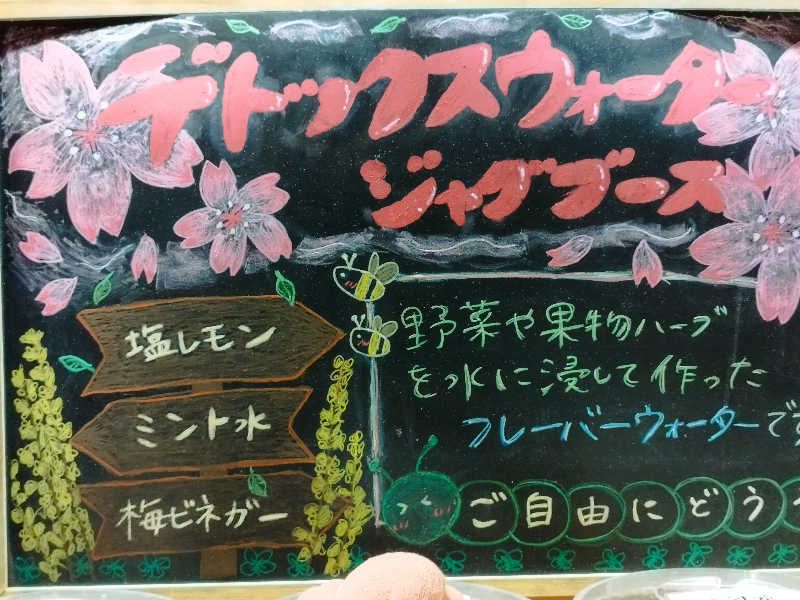 デトックスウォーター
ジャグブース
塩レモン
ミント水
梅ビネガー
野菜や果物ハーブ
を水に浸して作った
フレーバーウォーターです
ご自由にどう